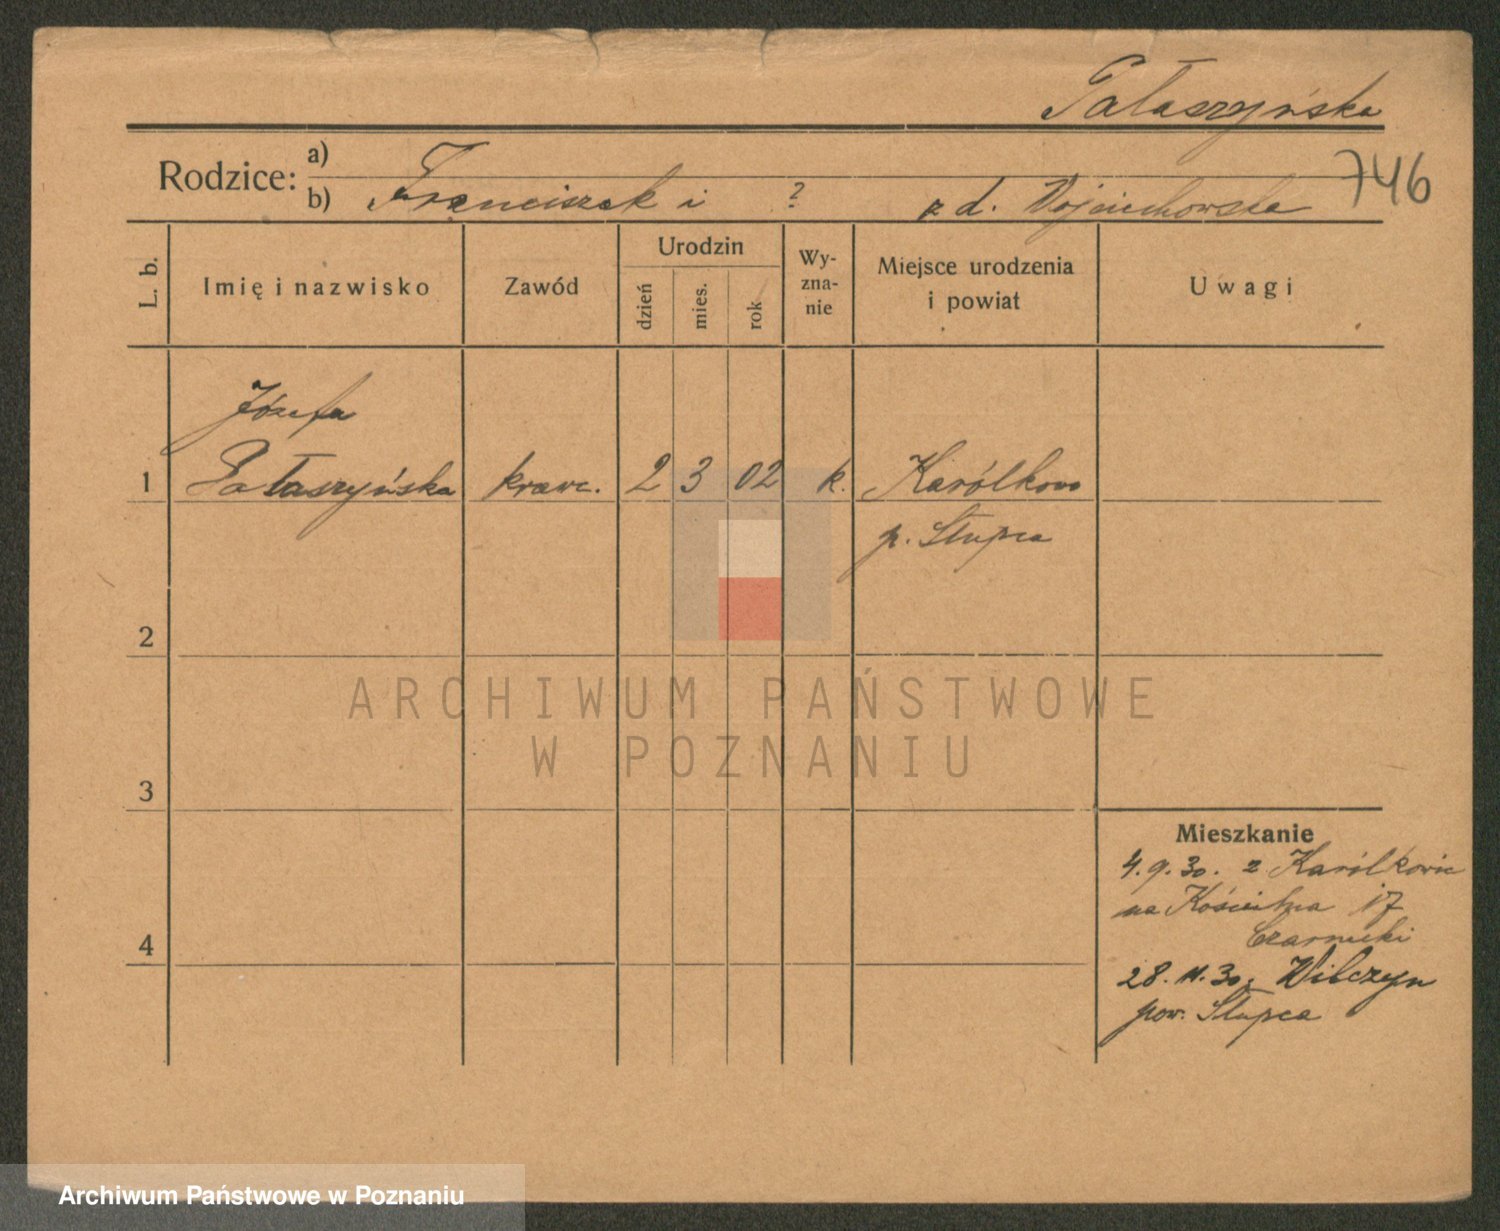 Pałaszyńska
746
Rodzice:
a)
b) Franciszek i ? z d. Wojciechowska
L. b.
Imię i nazwisko
Zawód
Urodzin
dzień
mies.
rok
Wy-
zna-
nie
Miejsce urodzenia
i powiat
Uwagi
Józefa
1 Pałaszyńska krawc. 2 3 02 k. Karólkowo
p. Słupca
2
ARCHIWUM PAŃSTWOWE
W POZNANIU
3
Mieszkanie
4. 9. 30. z
na 17
4 Czarnecki
28. 11. 30. Wilczyn
pow. Słupca
Archiwum Państwowe w Poznaniu